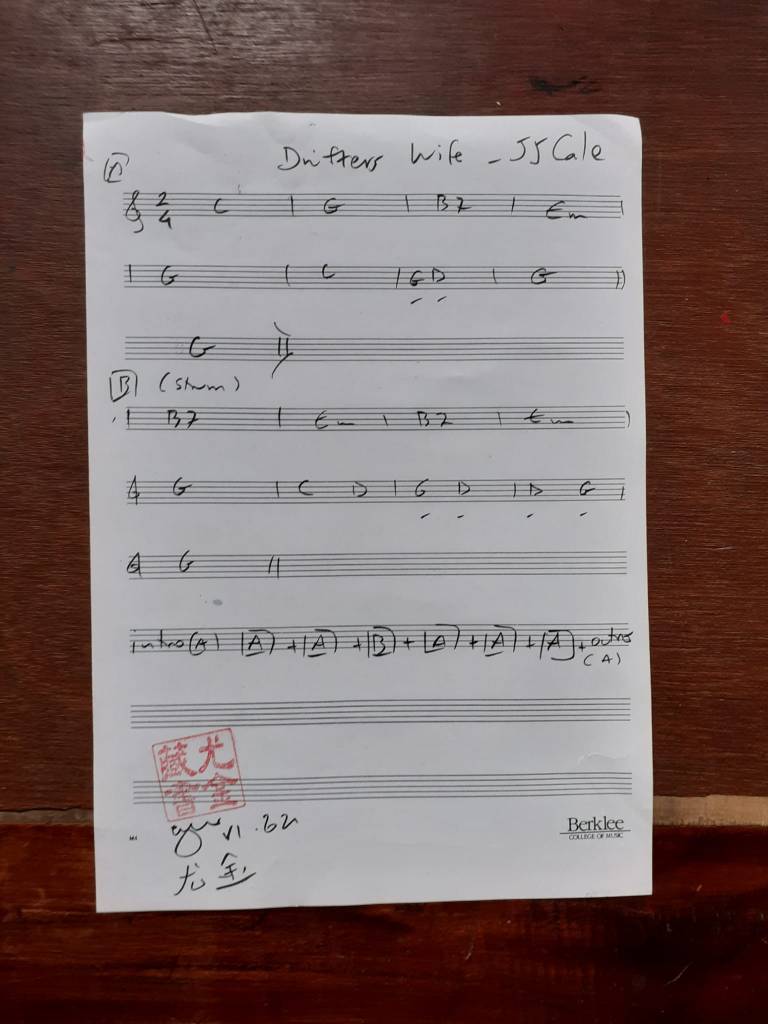 Drifters Wife - JJ Cale
A
2 4 C | G | B7 | Em |
| G | C | G D | G ||
G ||
B (Strum)
| B7 | Em | B7 | Em |
G | C D | G D | D G |
G ||
intro (A) A + A + B + A + A + A + outro
(A)
尤金
藏書
尤金
Berklee
COLLEGE OF MUSIC